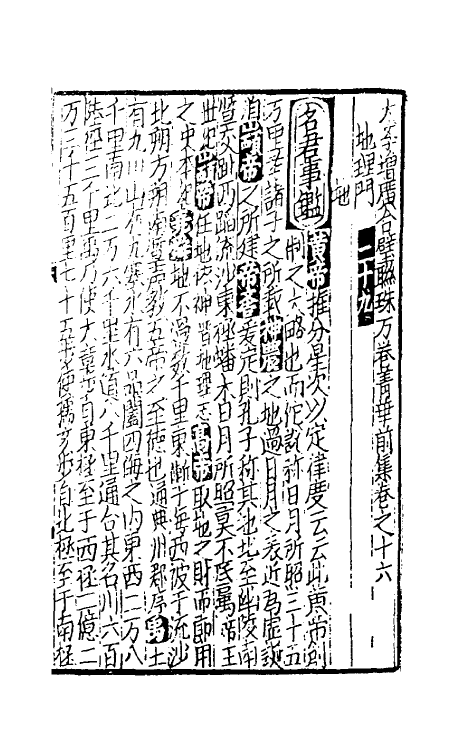 太學增廣合璧聯珠万卷菁華前集卷之十六
地理門
地 二十九
名君事鑑 黃帝推分星次以定律度云云此黃帝創
制之大略也而佗說称日月所照三十五
万里 諸子之所載神農之地過日月之表近為虛誕
顓帝之所建帝嚳爰定則孔子称其地北至幽陵南
暨交趾西蹈流沙東極蟠木日月所照莫不底屬帝王
世紀顓帝任地 神晉地理志高帝取地之財而節用
之史本 堯 地不過数千里東漸于海西被于流沙
北朔方朔南暨声敎五帝之至德也通典州郡序禹土
有九川山有九塞水有六品闔四海之内東西二万八
千里南北二万六千里水道八千里通谷其名川六百
陸徑三千里禹乃使大章步自東極至于西極二億二
万三千五百里七十五步使竪亥步自北極至于南極